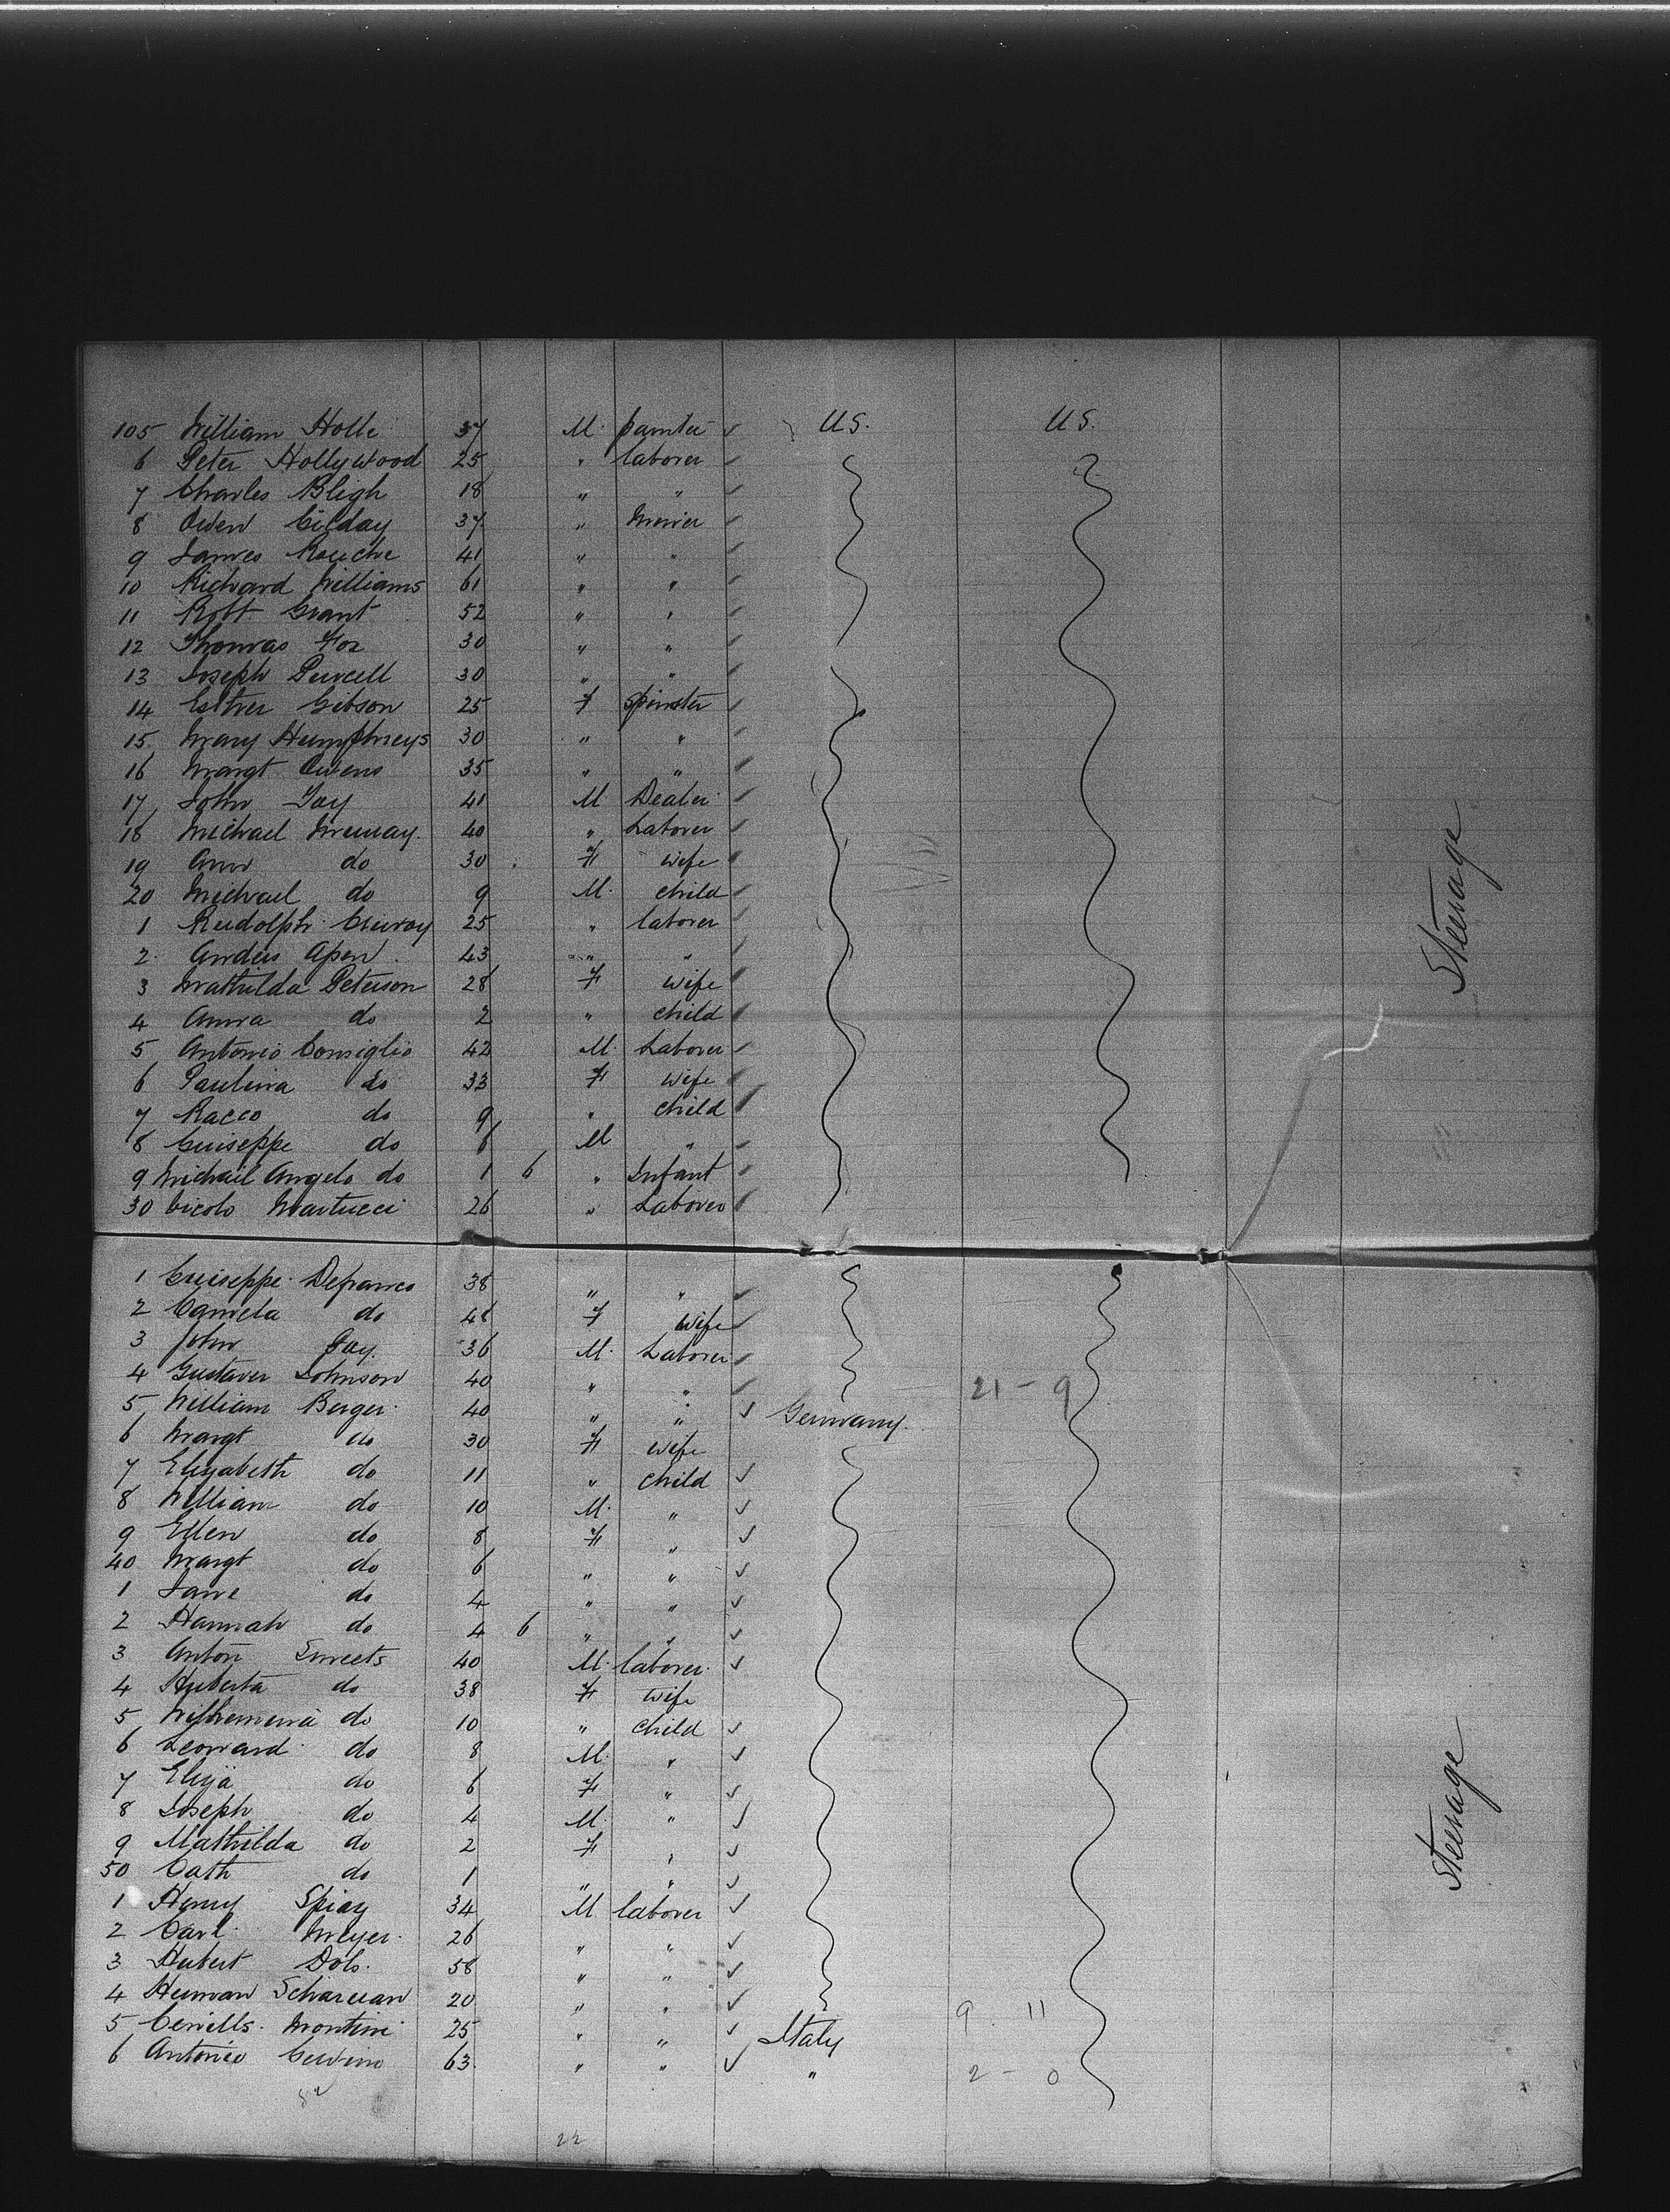 105 William Holle 37 M. painter ✓ U.S. U.S.
6 Peter Hollywood 25 " laborer
7 Charles Bligh 18 " "
8 Owen Cilday 37 " Miner
9 James Rouche 41 " "
10 Richard Williams 61 " "
11 Robt. Grant 52 " "
12 Thomas Fox 30 " "
13 Joseph Purcell 30 " "
14 Esther Gibson 25 F Spinster
15 Mary Humphreys 30 " "
16 Margt Owens 35 " "
17 John Gay 41 M Dealer
18 Michael 40 " Laborer
19 Ann do 30 F wife
20 Michael do 9 M. child
1 Rudolph 25 " laborer
2 Anders Apen 43 " "
3 Mathilda Peterson 28 F wife
4 Anna do 2 " child
5 Antonio Consiglio 42 M. Laborer
6 Paulina do 33 F wife
7 Racco do 9 " child
8 Guiseppe do 6 M "
9 Michail Angelo do 1 6 " Infant
30 Martucci 26 " Laborer
Steerage
1 Guiseppe Defranco 38 " "
2 Camela do 48 F wife
3 John Gay. 36 M. Laborer
4 Gustaver Johnson 40 " " 21 - 9
5 William Berger 40 " " ✓ Germany.
6 Margt do 30 F wife
7 Elizabeth do 11 " child ✓
8 William do 10 M. " ✓
9 Ellen do 8 F " ✓
40 Margt do 6 " " ✓
1 Jane do 4 " " ✓
2 Hannah do 4 6 " " ✓
3 Anton Smeets 40 M. laborer ✓
4 Huberta do 38 F wife
5 Wilhemina do 10 " child ✓
6 Leonard do 8 M. " ✓
7 Eliza do 6 F " ✓
8 Joseph do 4 M. " ✓
9 Mathilda do 2 F " ✓
50 Cath do 1 " " ✓
1 Henry 34 M laborer ✓
2 Carl Meyer 26 " " ✓
3 Hubert Dols. 58 " " ✓
4 Herman 20 " " ✓ 9 11
5 Montini 25 " " ✓ Italy
6 Antonio 63 " " ✓ " 2 - 0
Steerage
22